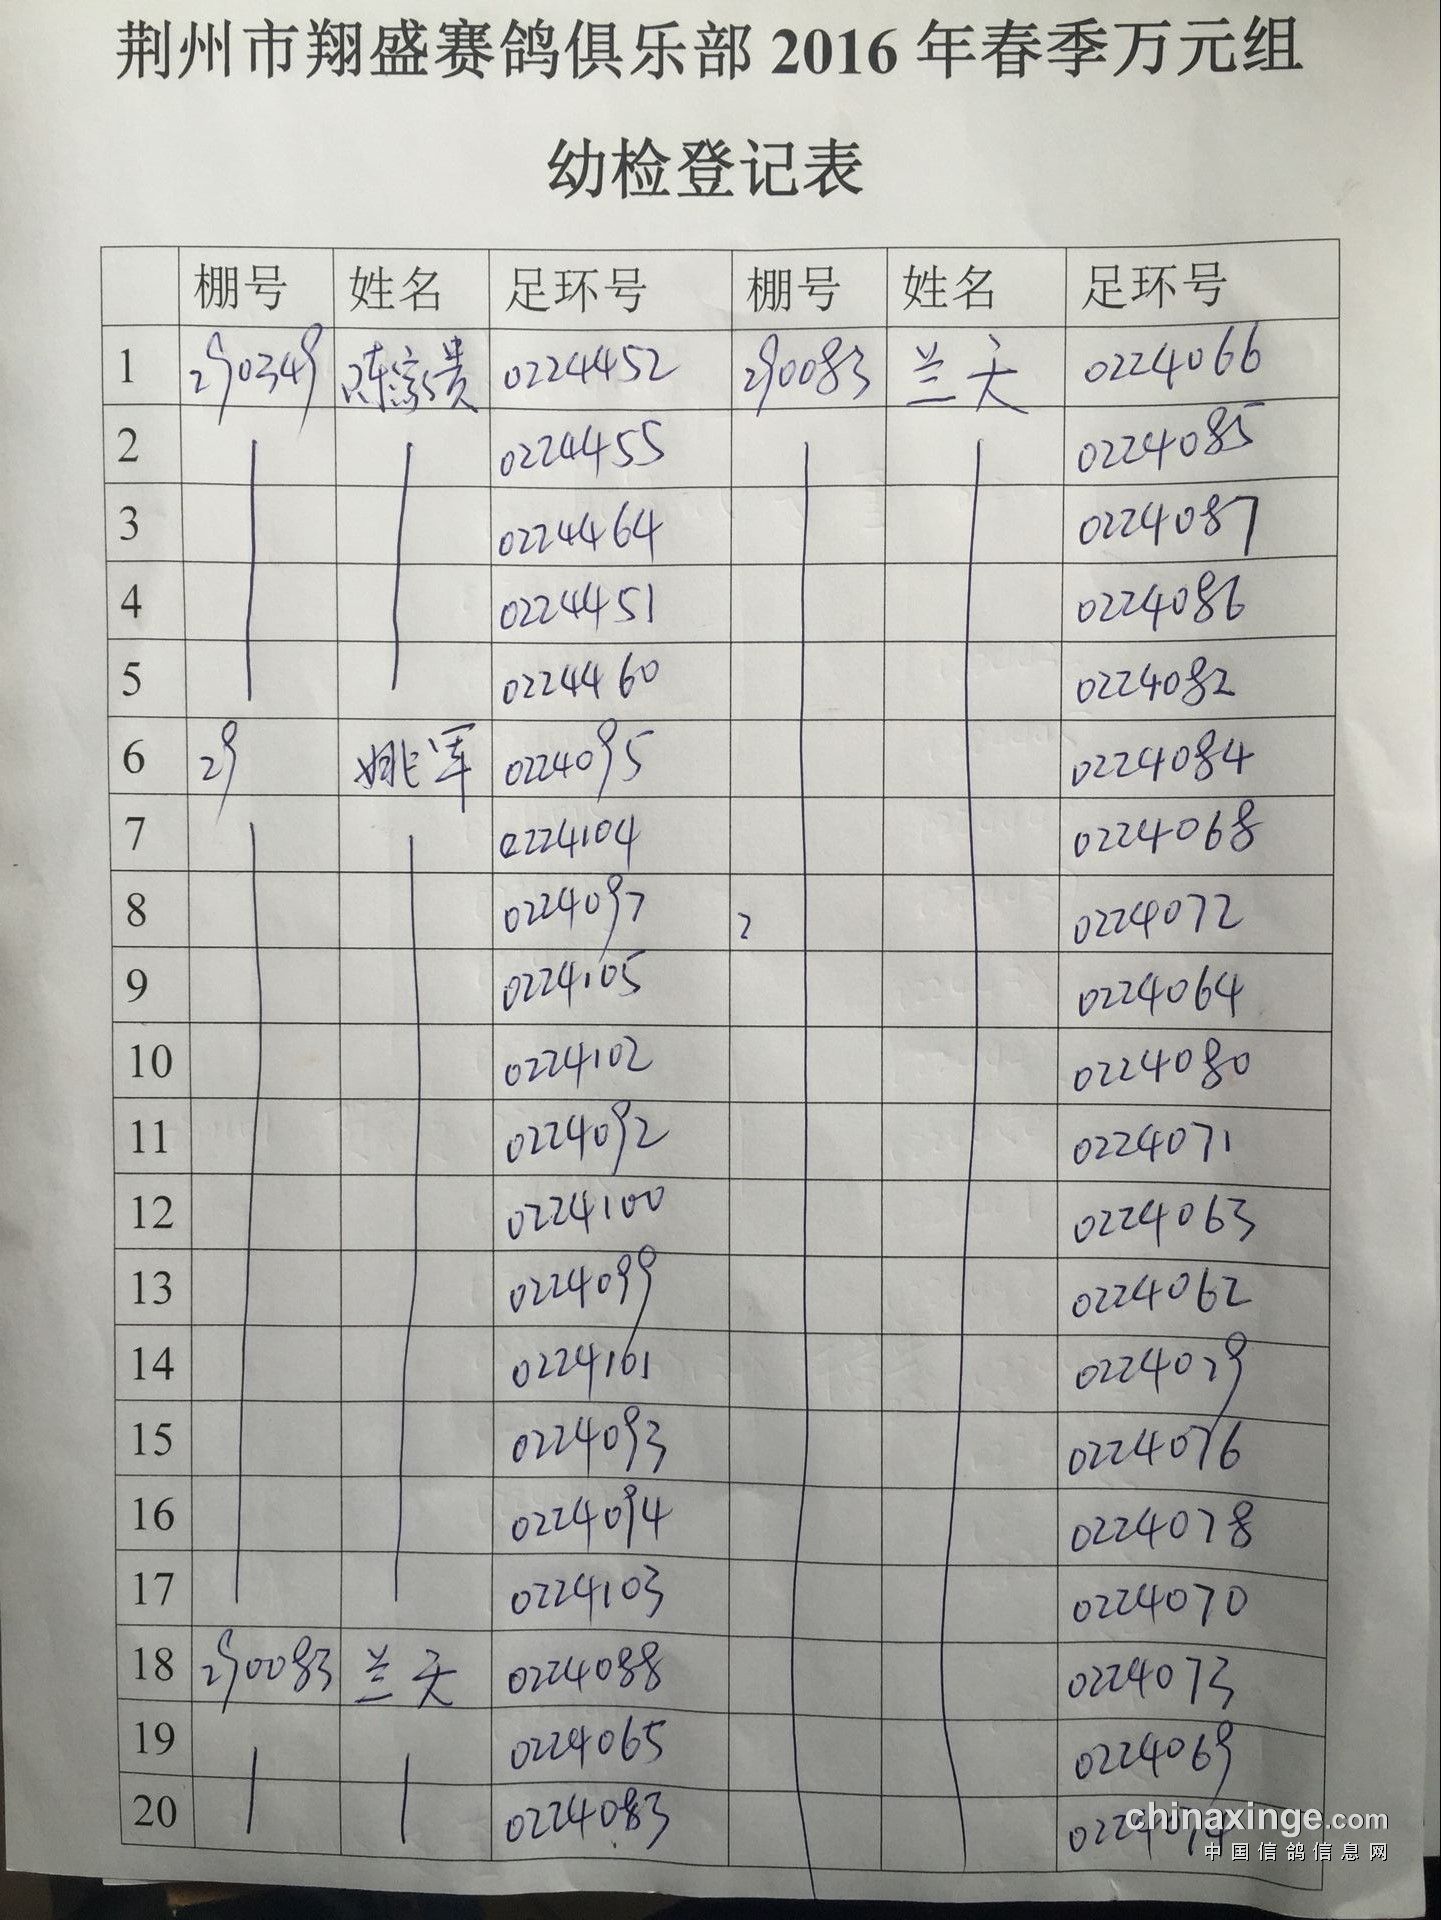 荆州市翔盛赛鸽俱乐部 2016 年春季万元组
幼检登记表
棚号 姓名 足环号 棚号 姓名 足环号
1 290349 陈家贵 0224452 290083 兰天 0224066
2 0224455 0224085
3 0224464 0224087
4 0224451 0224086
5 0224460 0224082
6 29 姚军 0224095 0224084
7 0224104 0224068
8 0224097 2 0224072
9 0224105 0224064
10 0224102 0224080
11 0224092 0224071
12 0224100 0224063
13 0224099 0224062
14 0224101 0224079
15 0224093 0224076
16 0224094 0224078
17 0224103 0224070
18 290083 兰天 0224088 0224073
19 0224065 0224069
20 0224083 0224074
chinaxinge.com
中国信鸽信息网